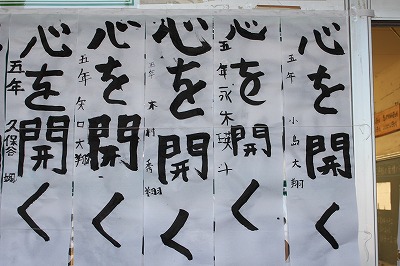 心を開く
五年 小島大翔
心を開く
五年 永木瑛斗
心を開く
五年 木村秀翔
心を開く
五年 矢口大翔
心を開く
五年 久保谷颯